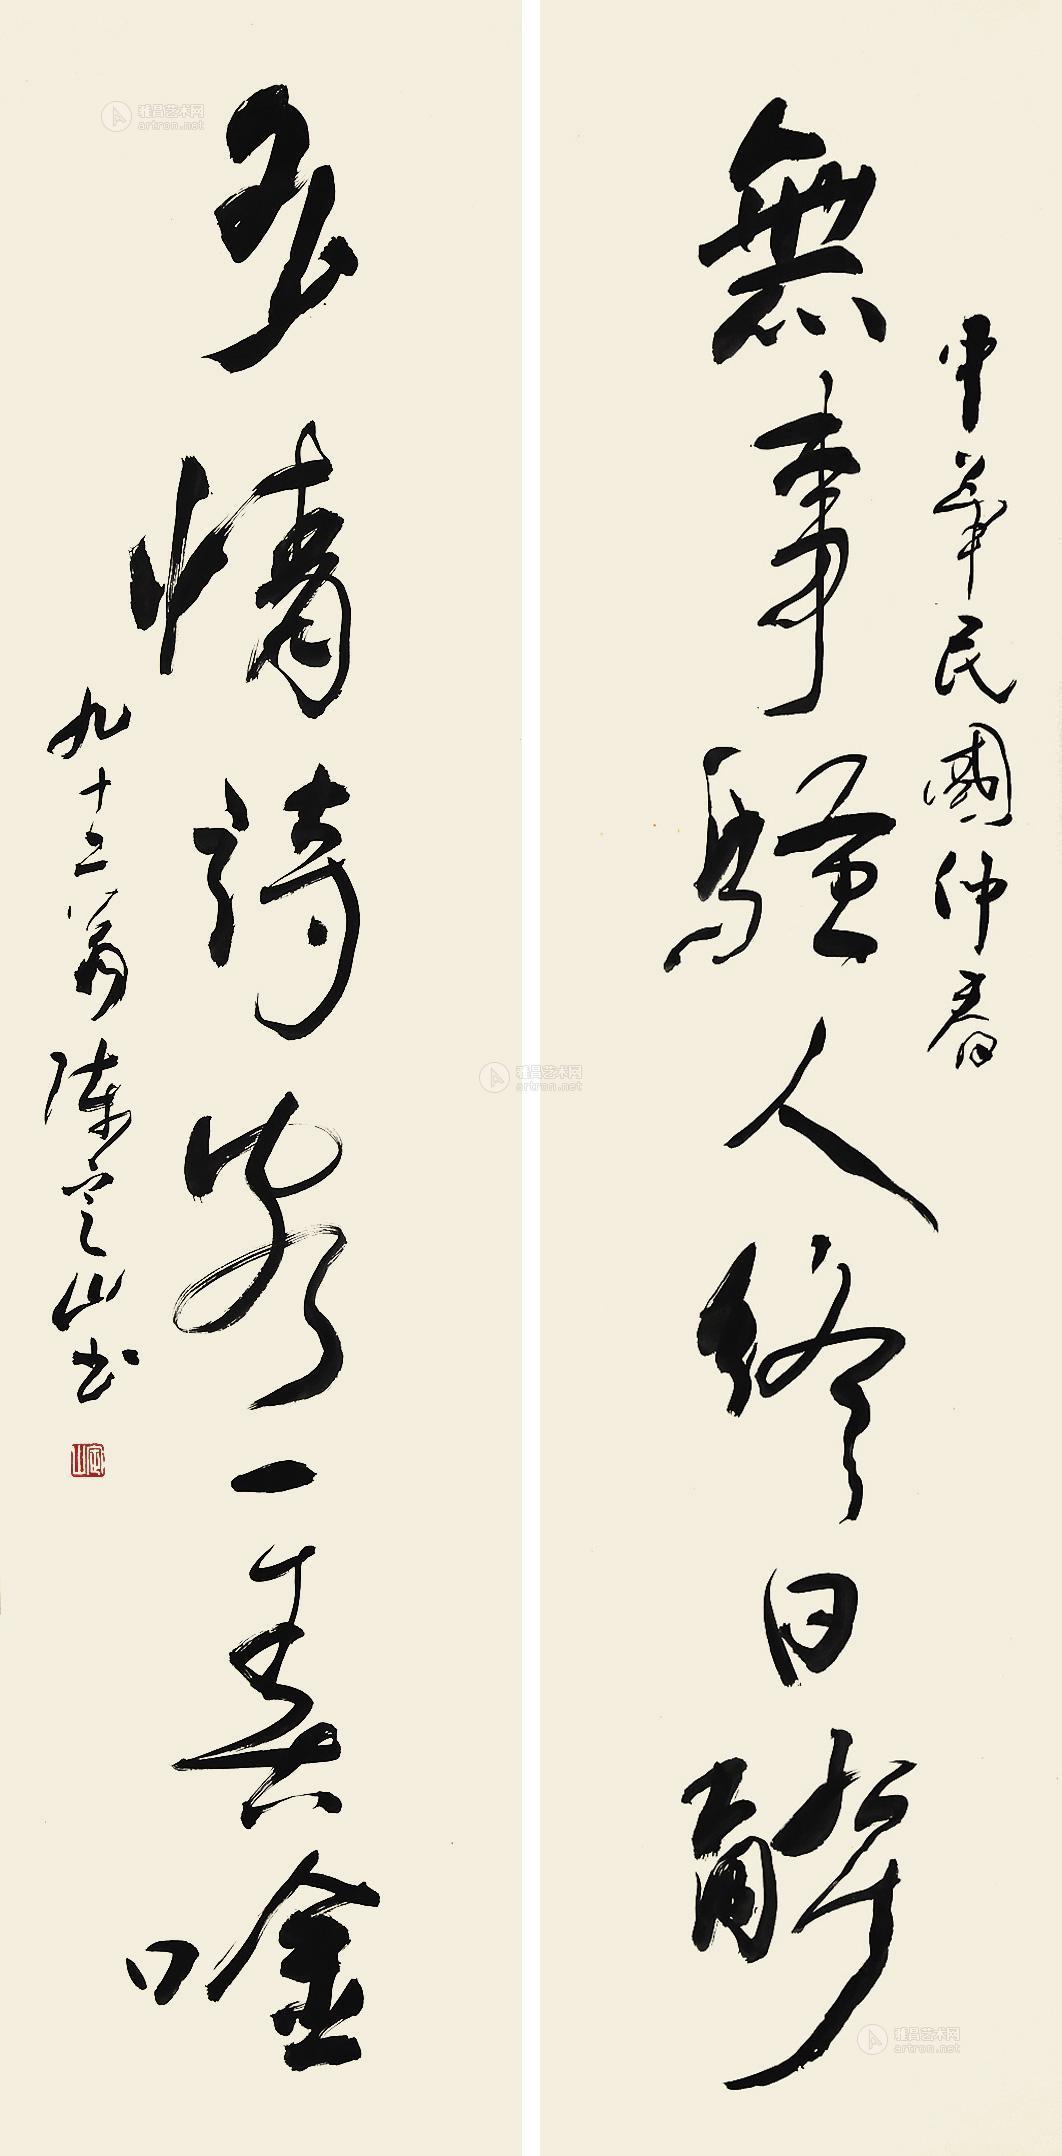 中華民國仲春
無事騷人終日醉
多情詩客一春唫
九十二翁陳定山書
定山
雅昌艺术网
artron.net
雅昌艺术网
artron.net
雅昌艺术网
artron.net